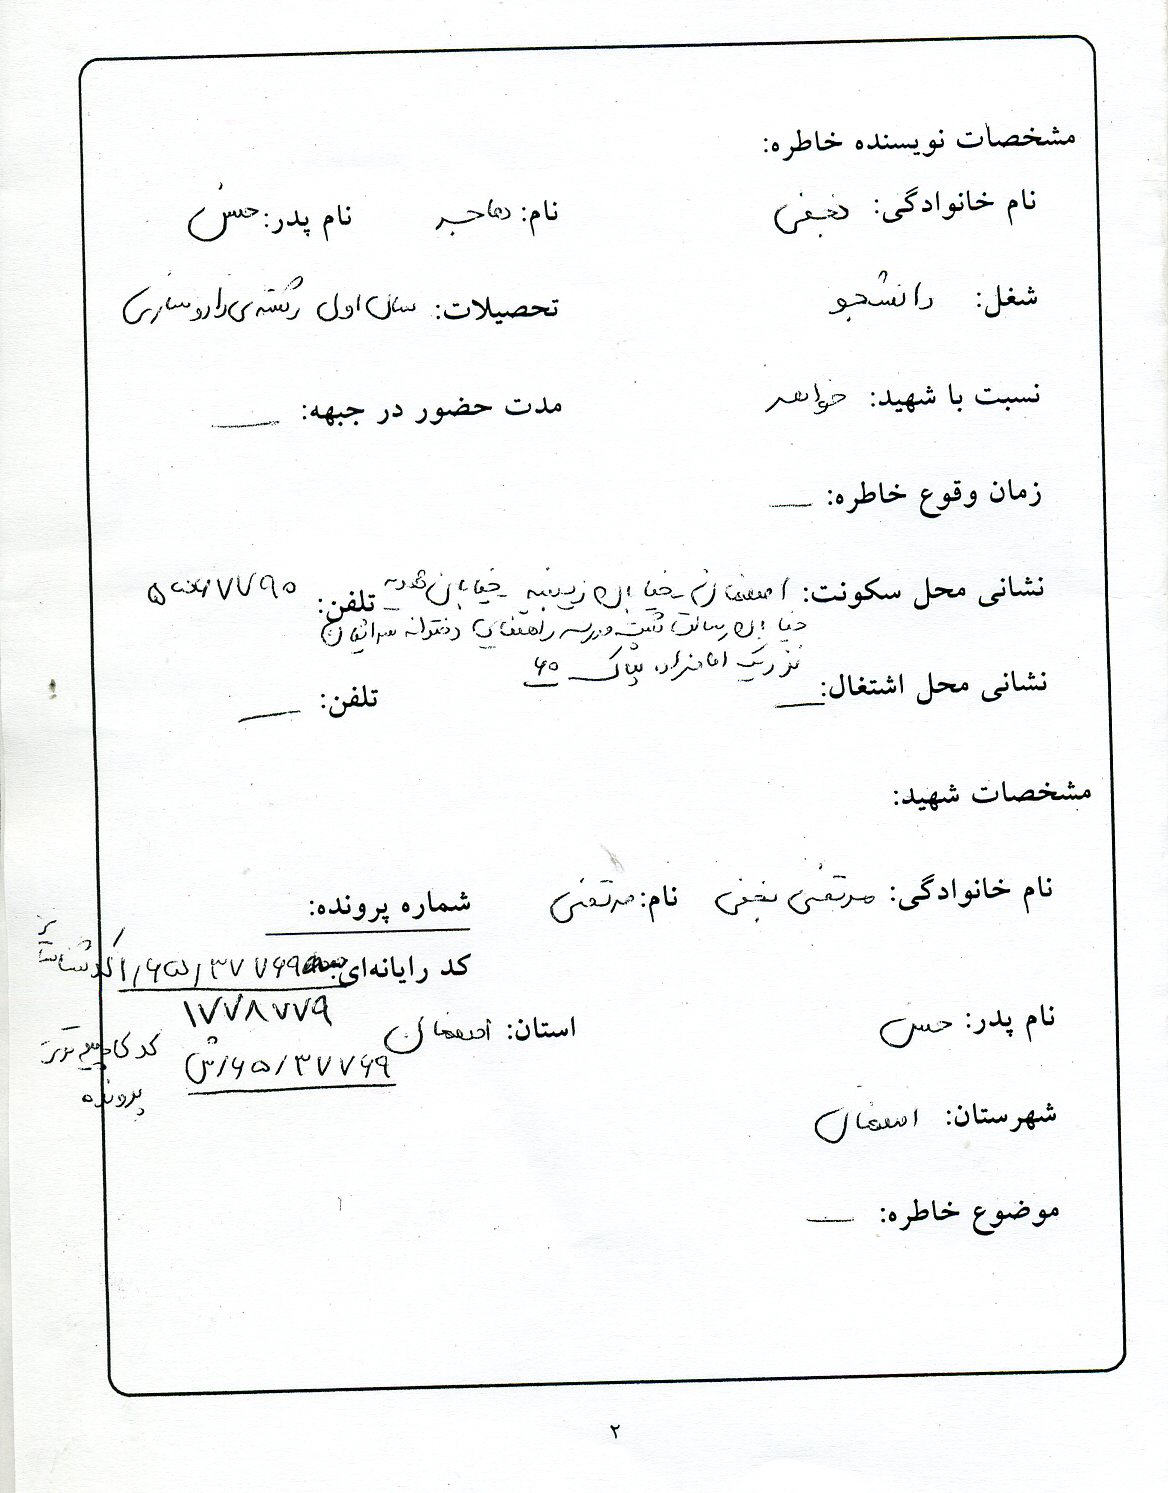 مشخصات نویسنده خاطره:
نام خانوادگی: نجفی نام: هاجر نام پدر: حسن
شغل: دانشجو تحصیلات: سال اول رشته‌ی داروسازی
نسبت با شهید: خواهر مدت حضور در جبهه: —
زمان وقوع خاطره: —
نشانی محل سکونت: اصفهان - خیابان زینبیه - خیابان تلفن:
خیابان رسالت پشت مدرسه راهنمایی دخترانه
نزدیک امامزاده پلاک ۶۵
نشانی محل اشتغال: — تلفن: —
مشخصات شهید:
نام خانوادگی: مرتضی نجفی نام: مرتضی شماره پرونده:
کد رایانه‌ای:
۱۷۷۸۷۷۹
نام پدر: حسن استان: اصفهان
۶۵/۳۷۷۶۹/ش
کد کامپیوتری
پرونده
شهرستان: اصفهان
موضوع خاطره: —
۲